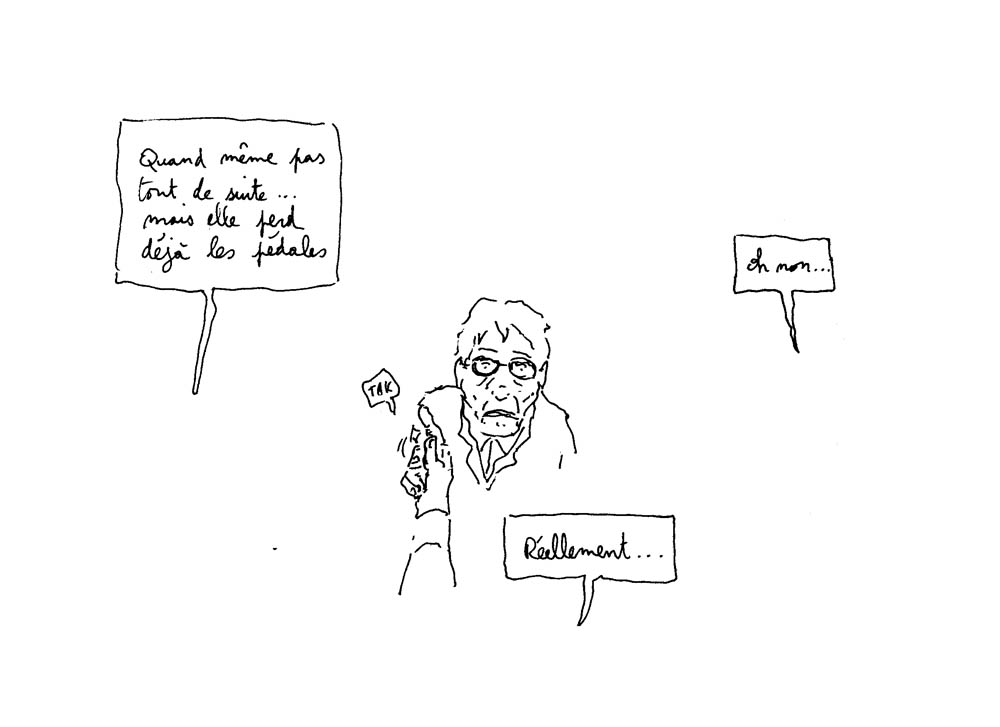 Quand même pas
tout de suite ...
mais elle perd
déjà les pédales
oh non...
TAK
Réellement...